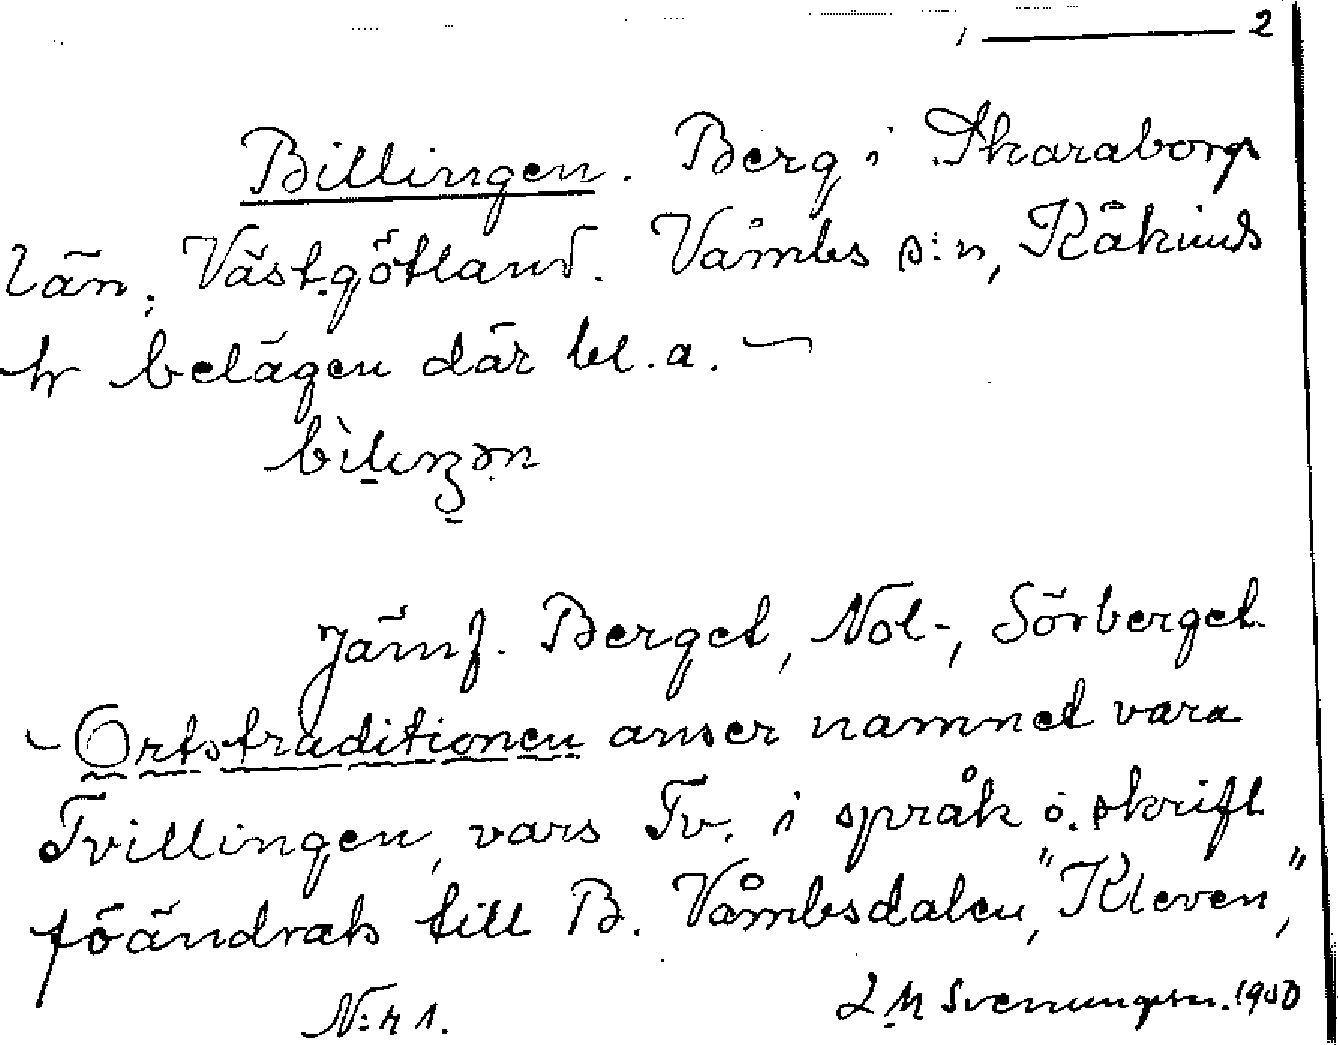 2
Billingen. Berg i Skaraborgs
län, Västgötland. Våmbs s:n, Kåkinds
hr belägen där bl. a. —
Jämf. Berget, Nol-, Sörberget
- Ortstraditionen anser namnet vara
Tvillingen, vars Tv. i språk o. skrift
föändrats till B. Våmbsdalen, "Kleven,"
N:r 1.
Svenungsson. 1930